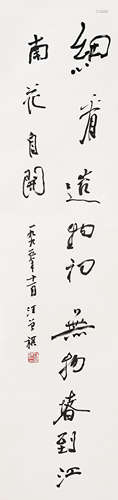 細看造物初無物春到江
南花自開
一九九年十一月汪曾祺